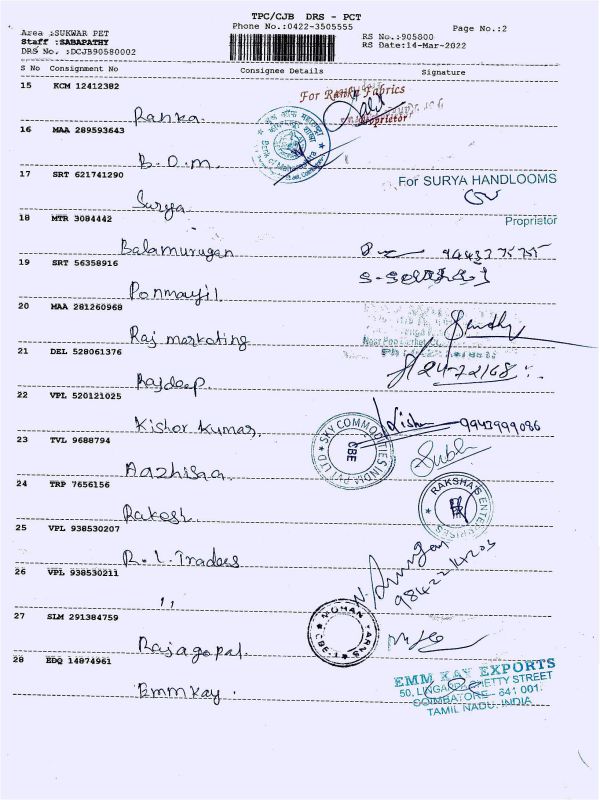 TPC/CJB DRS - PCT
Phone No.:0422-3505555
Page No.:2
Area :SUKWAR PET
Staff :SABAPATHY
DRS No. :DCJB90580002
RS No.:905800
RS Date:14-Mar-2022
S No Consignment No Consignee Details Signature
15 KCM 12412382
For Ranka Fabrics
Proprietor
Ranka
16 MAA 289593643
B.O.M.
17 SRT 621741290
For SURYA HANDLOOMS
Surya
Proprietor
18 MTR 3084442
Balamurugan
19 SRT 56358916
Ponmayil
20 MAA 281260968
Raj marketing
21 DEL 528061376
Rajdeep
22 VPL 520121025
Kishor Kumar.
9943999086
SKY COMMODITIES INDIA PVT LTD
CBE
23 TVL 9688794
Aazhisha
24 TRP 7656156
Rakesh
RAKSHA'S ENTERPRISES
25 VPL 938530207
R.L. Traders
26 VPL 938530211
,,
27 SLM 291384759
MOHAN YARNS
CBE-1
Rajagopal
28 EDQ 14874961
Emmkay.
EMM KAY EXPORTS
50, LINGAPPA CHETTY STREET
COIMBATORE - 641 001.
TAMIL NADU, INDIA